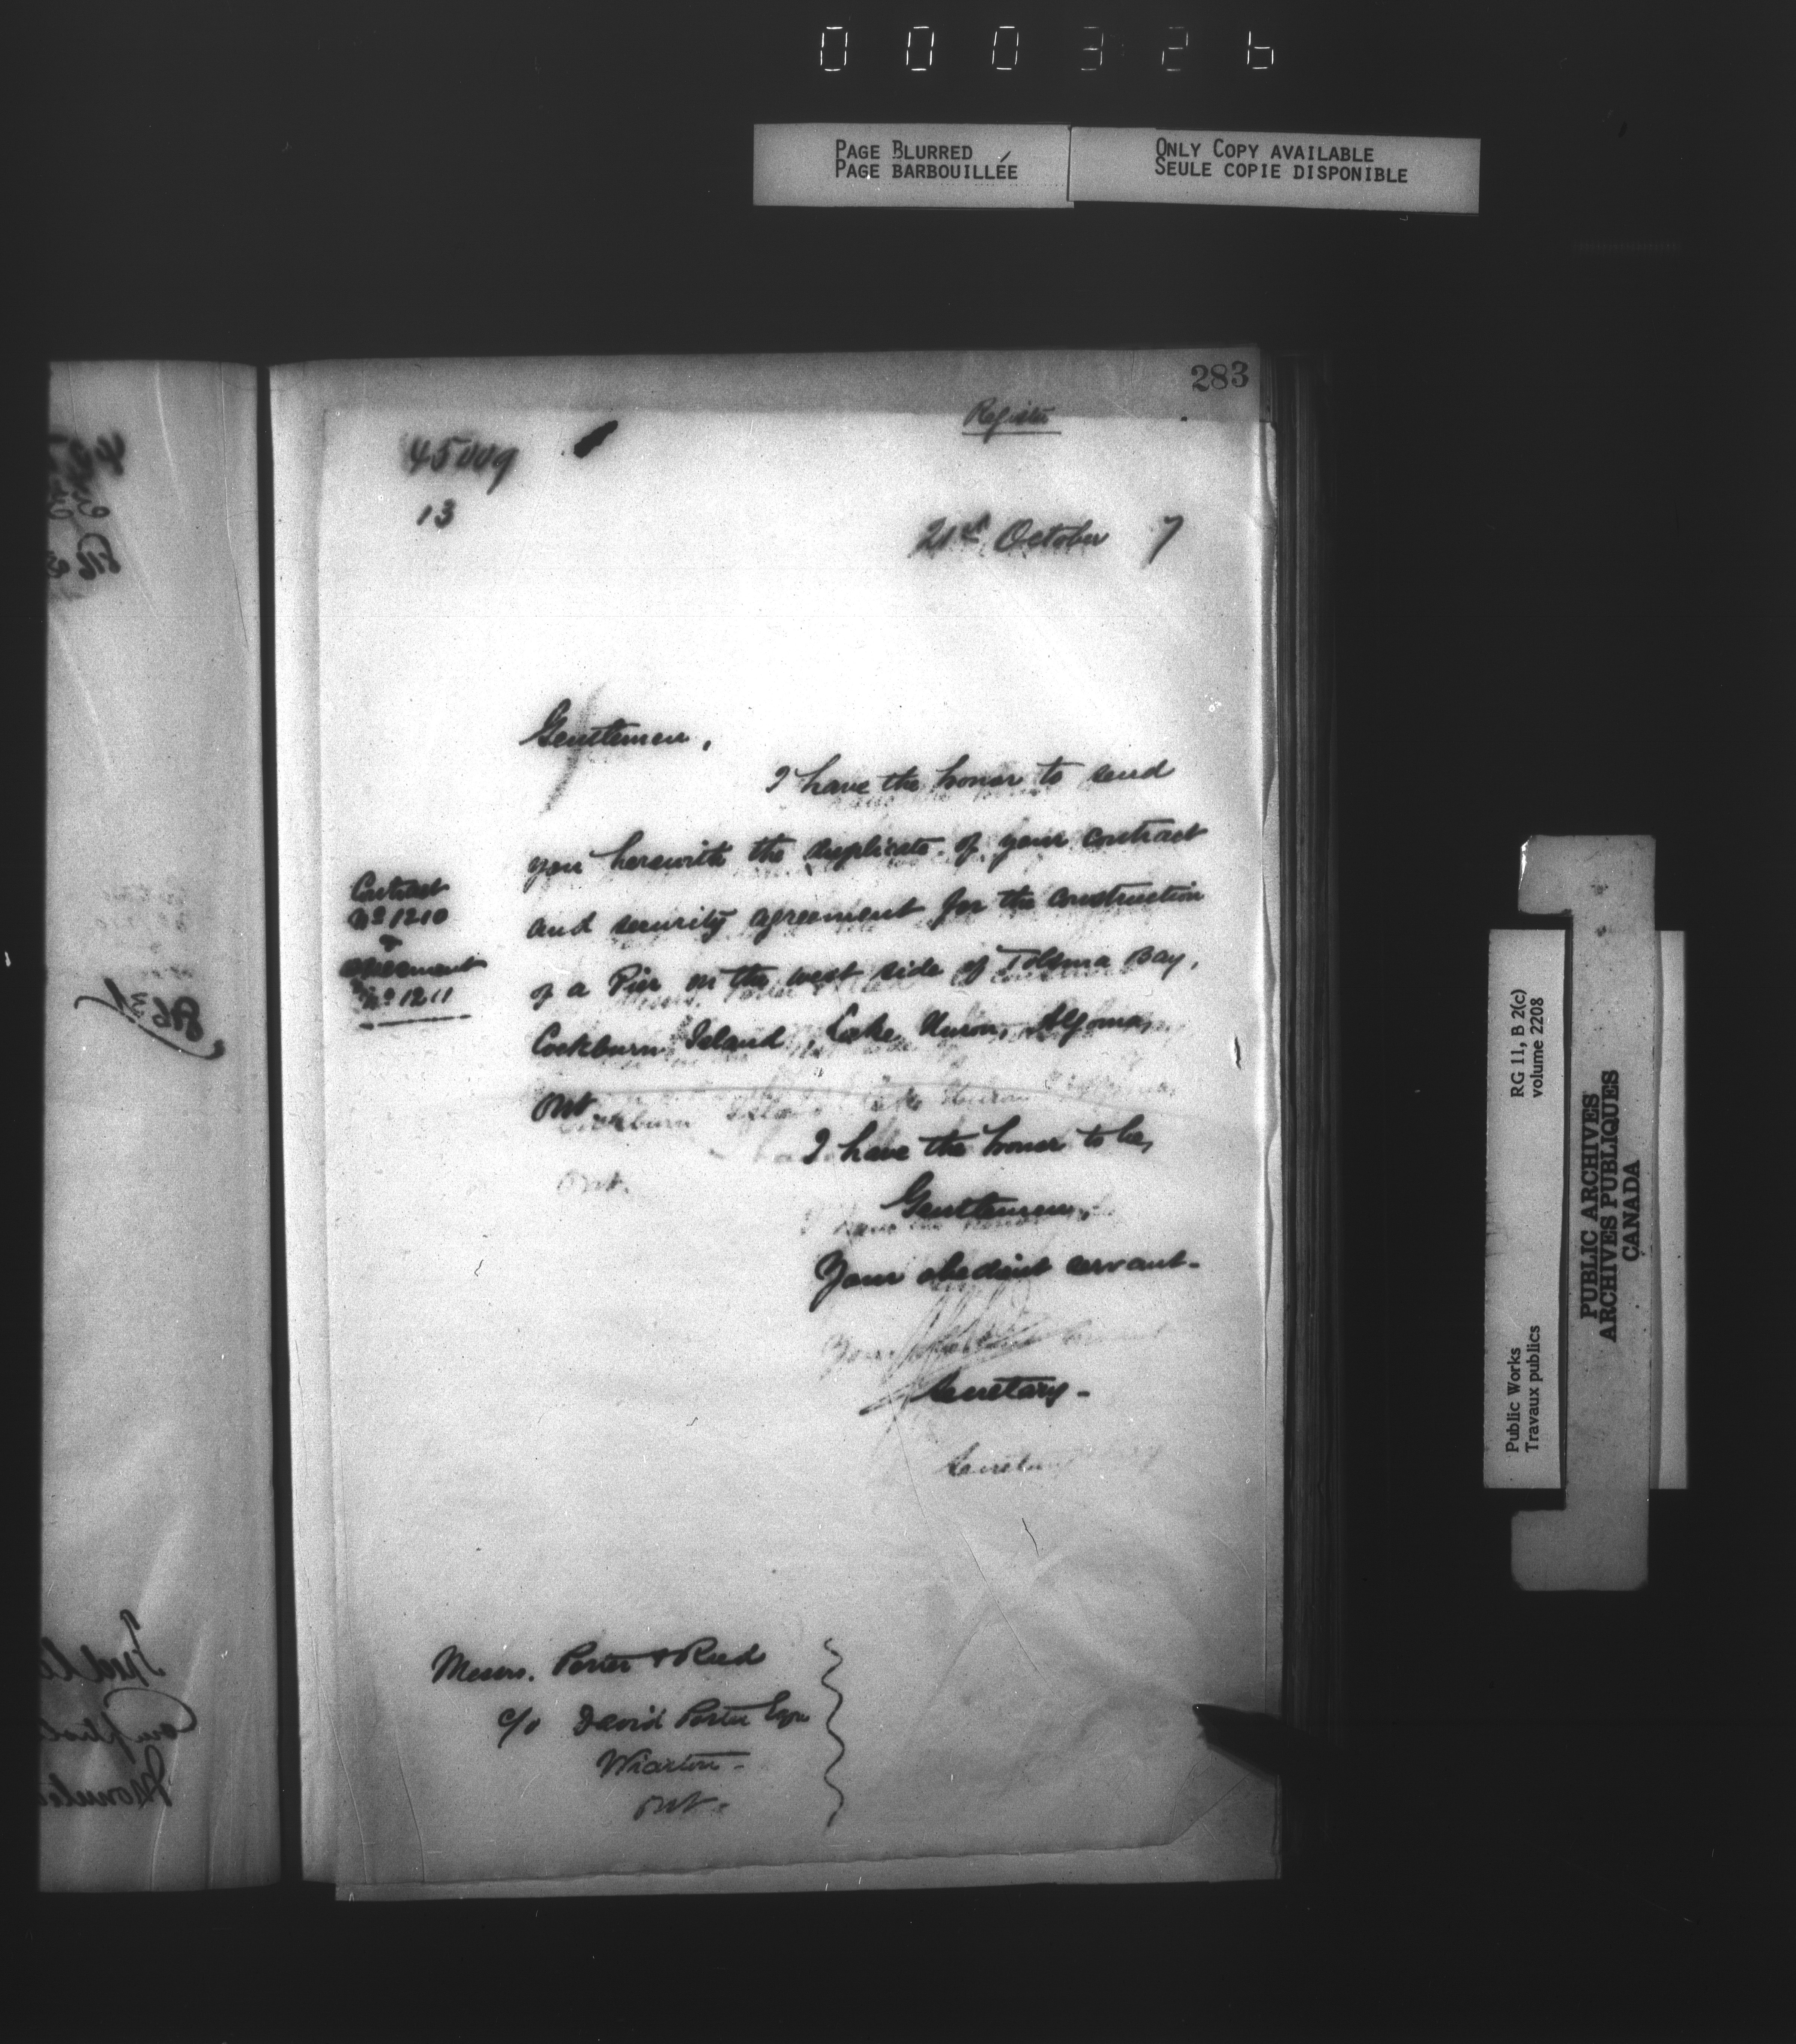 000326
PAGE BLURRED
PAGE BARBOUILLÉE
ONLY COPY AVAILABLE
SEULE COPIE DISPONIBLE
283
Register
45009
13
21st October 7
Gentlemen,
I have the honor to send
you herewith the duplicate of your contract
and security agreement for the construction
of a Pier on the west side of Tolsma Bay,
Cockburn Island, Lake Huron, Algoma,
Ont.
Contract
No 1210
&
agreement
No 1211
I have the honor to be,
Gentlemen,
Your obedient servant-
Secretary-
Messrs. Porter & Reed
c/o David Porter Esqre
Wiarton-
Ont.
Public Works
Travaux publics
RG 11, B 2(c)
volume 2208
PUBLIC ARCHIVES
ARCHIVES PUBLIQUES
CANADA